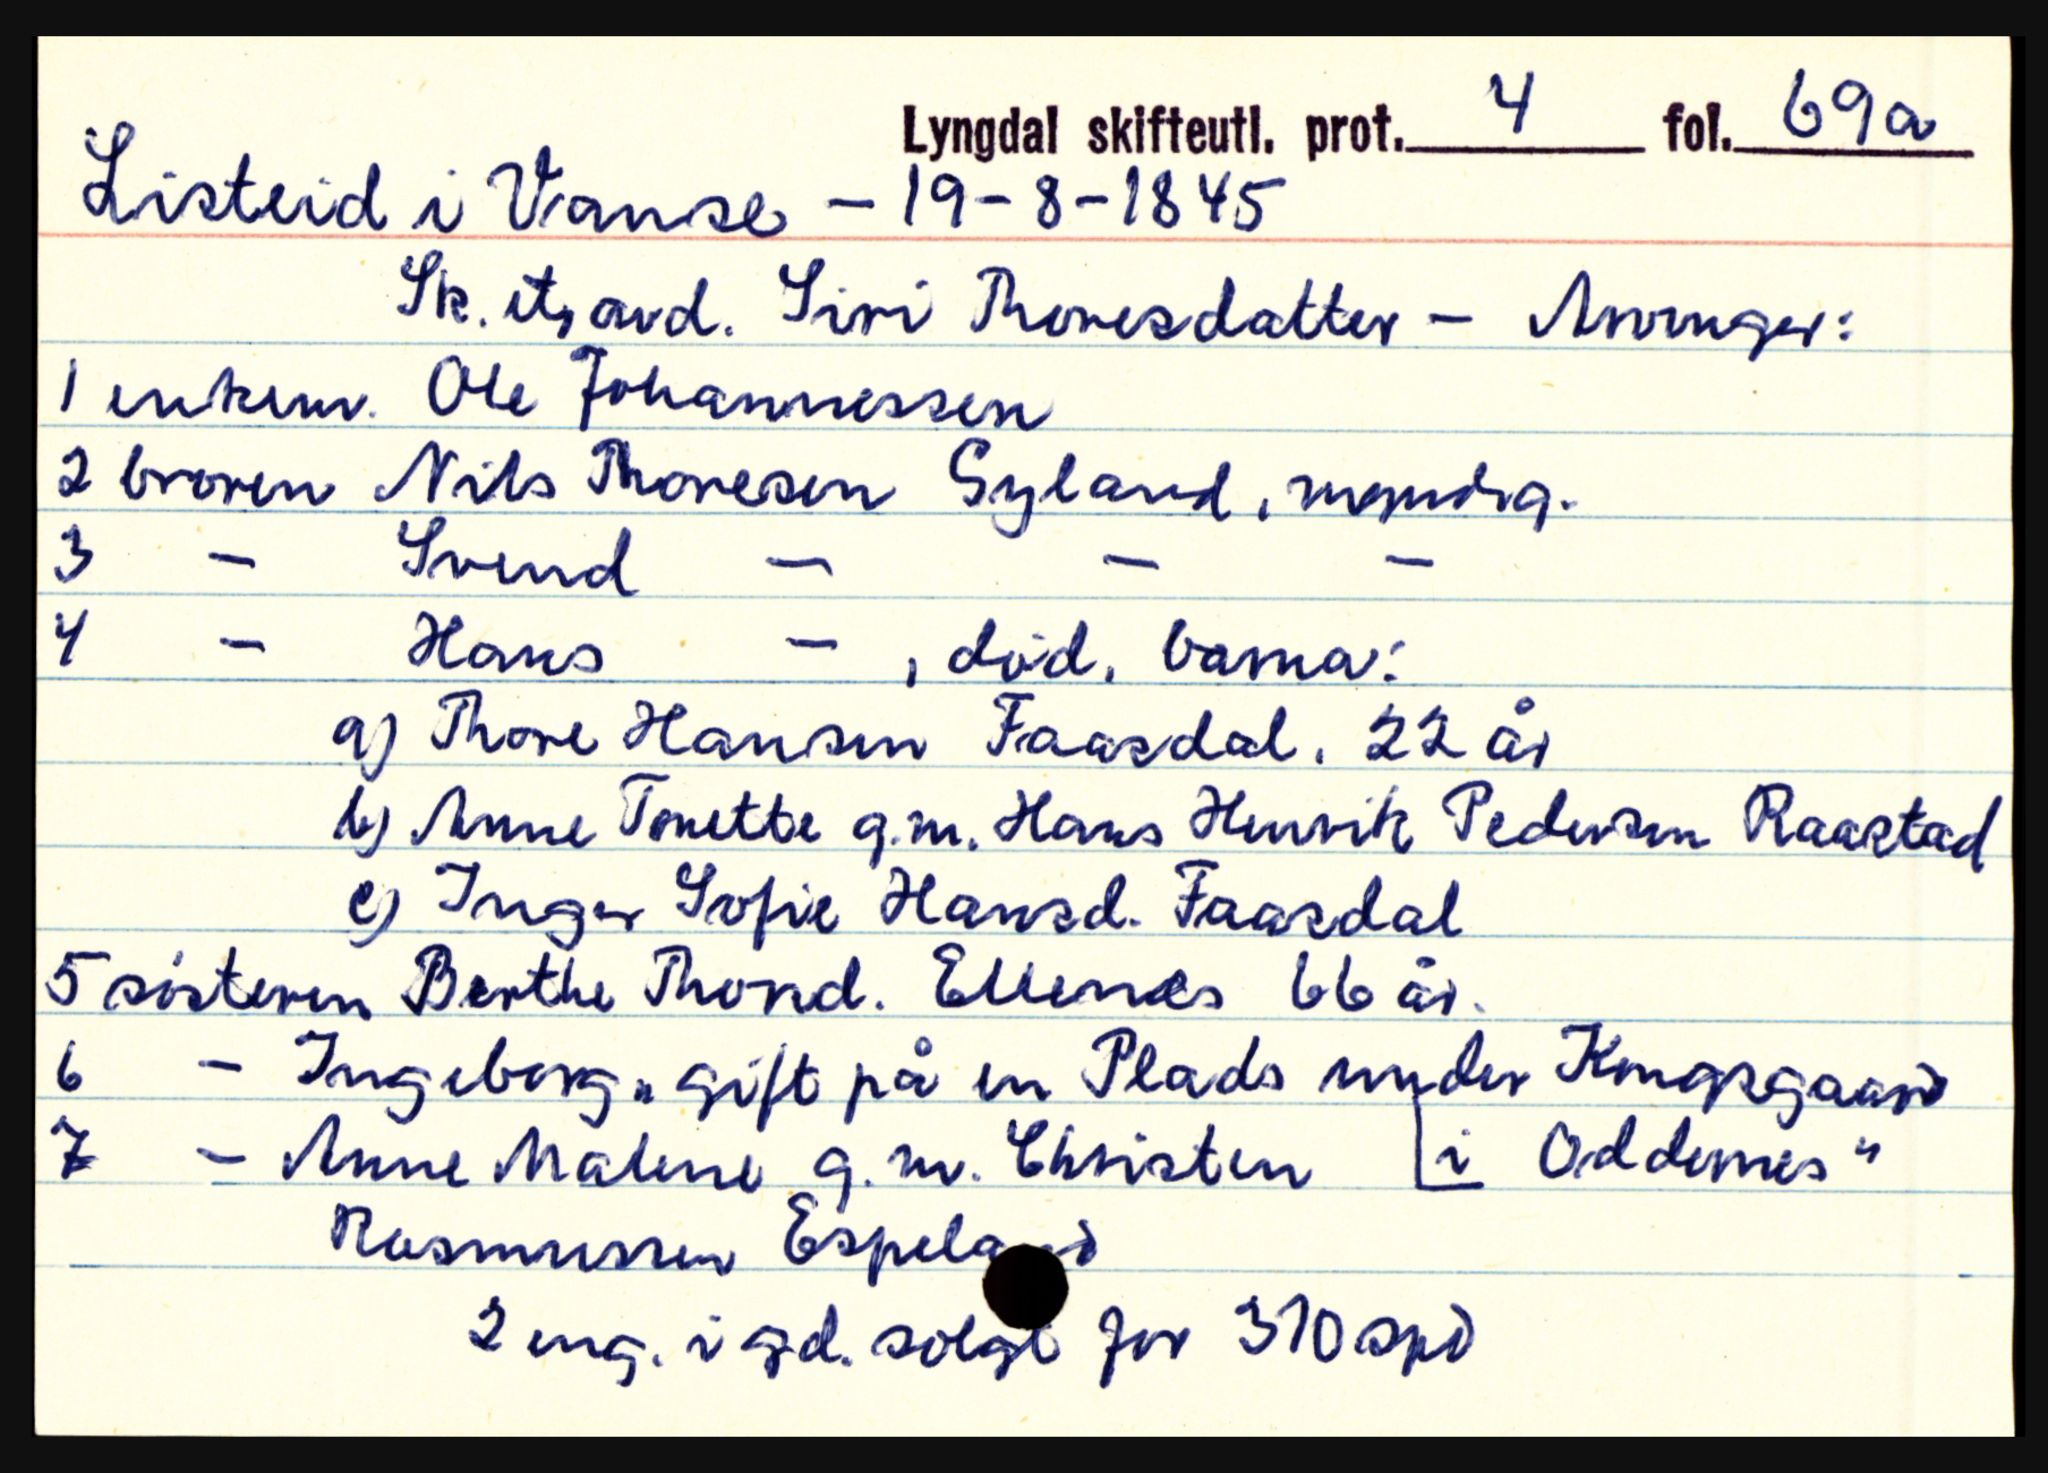 Lyngdal skifteutl. prot. 4 fol. 69a
Listeid i Vanse – 19-8-1845
Sk. et. avd. Siri Thoresdatter – Arvinger:
1 enkem. Ole Johannessen
2 broren Nils Thoresen Gyland, myndig.
3 – Svend – – –
4 – Hans – , död, barna:
a) Thore Hansen Faasdal, 22 år
b) Anne Tonette g.m. Hans Henrik Pedersen Raastad
c) Inger Sofie Hansd. Faasdal
5 sösteren Berthe Thorsd. Ellenæs 66 år.
6 – Ingeborg „gift på en Plads under Kongsgaard
7 – Anne Malene g.m. Christen [i Oddernes"
Rasmussen Espeland
2 eng. i gd. solgt for 310 spd